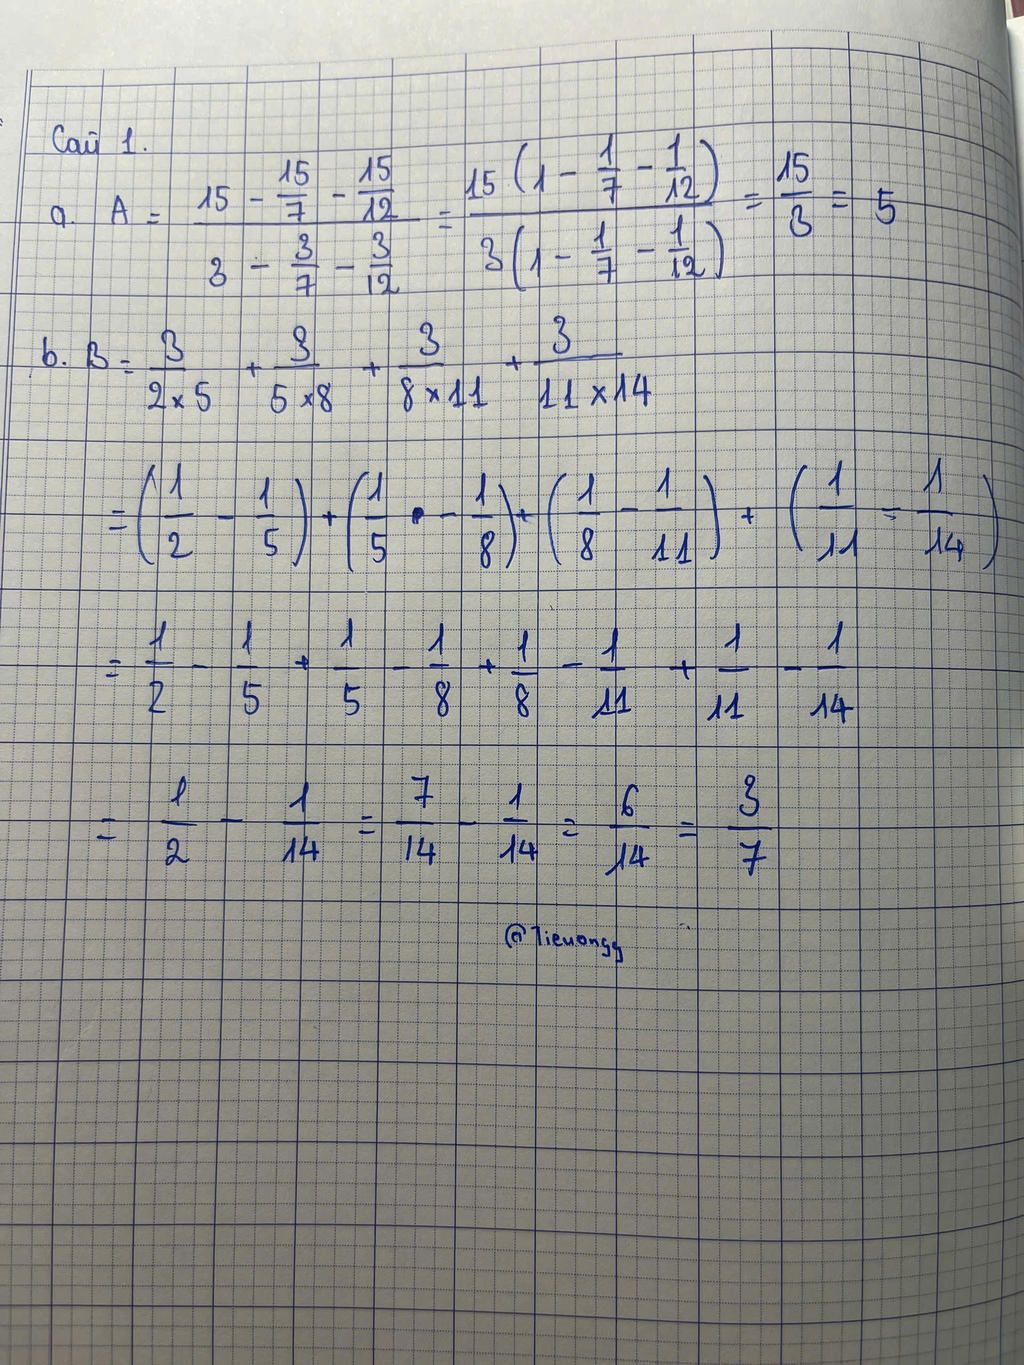 Câu 1.
a. A = (15 - 15/7 - 15/12)/(3 - 3/7 - 3/12) = 15(1 - 1/7 - 1/12)/3(1 - 1/7 - 1/12) = 15/3 = 5
b. B = 3/(2×5) + 3/(5×8) + 3/(8×11) + 3/(11×14)
= (1/2 - 1/5) + (1/5 - 1/8) + (1/8 - 1/11) + (1/11 - 1/14)
= 1/2 - 1/5 + 1/5 - 1/8 + 1/8 - 1/11 + 1/11 - 1/14
= 1/2 - 1/14 = 7/14 - 1/14 = 6/14 = 3/7